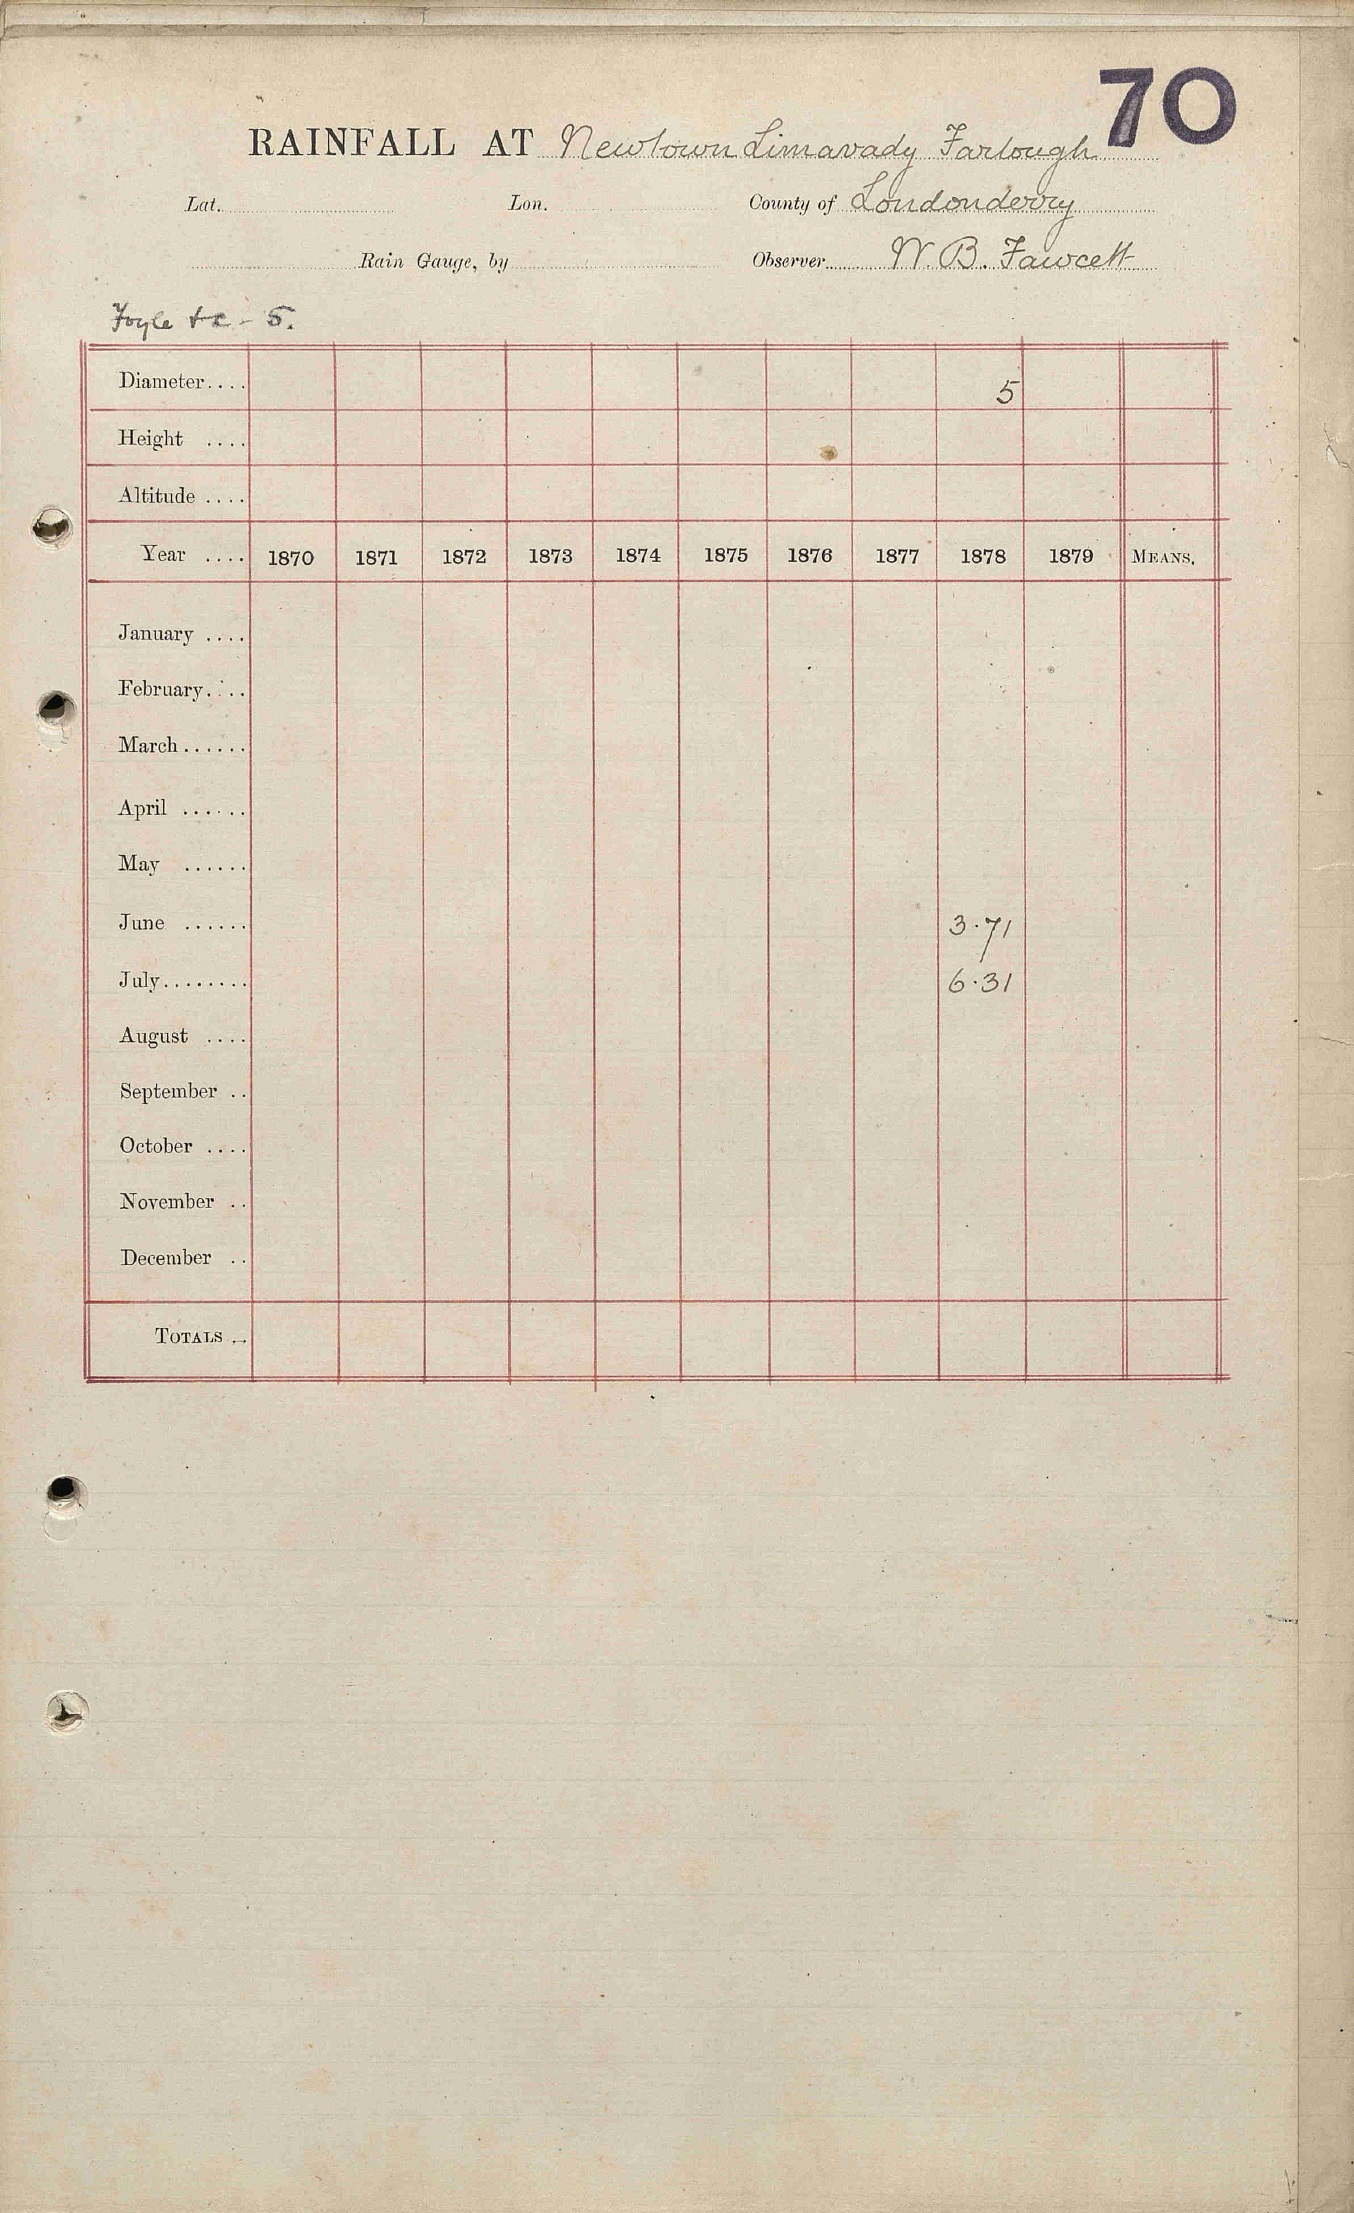 70
RAINFALL AT Newtown Limavady Farlough
Lat. Lon. County of Londonderry
Rain Gauge, by Observer W. B. Fawcett
Foyle &c - 5.
Diameter.... 5
Height ....
Altitude ....
Year .... 1870 1871 1872 1873 1874 1875 1876 1877 1878 1879 MEANS.
January ....
February....
March......
April ......
May ......
June ...... 3.71
July........ 6.31
August ....
September ..
October ....
November ..
December ..
TOTALS ..